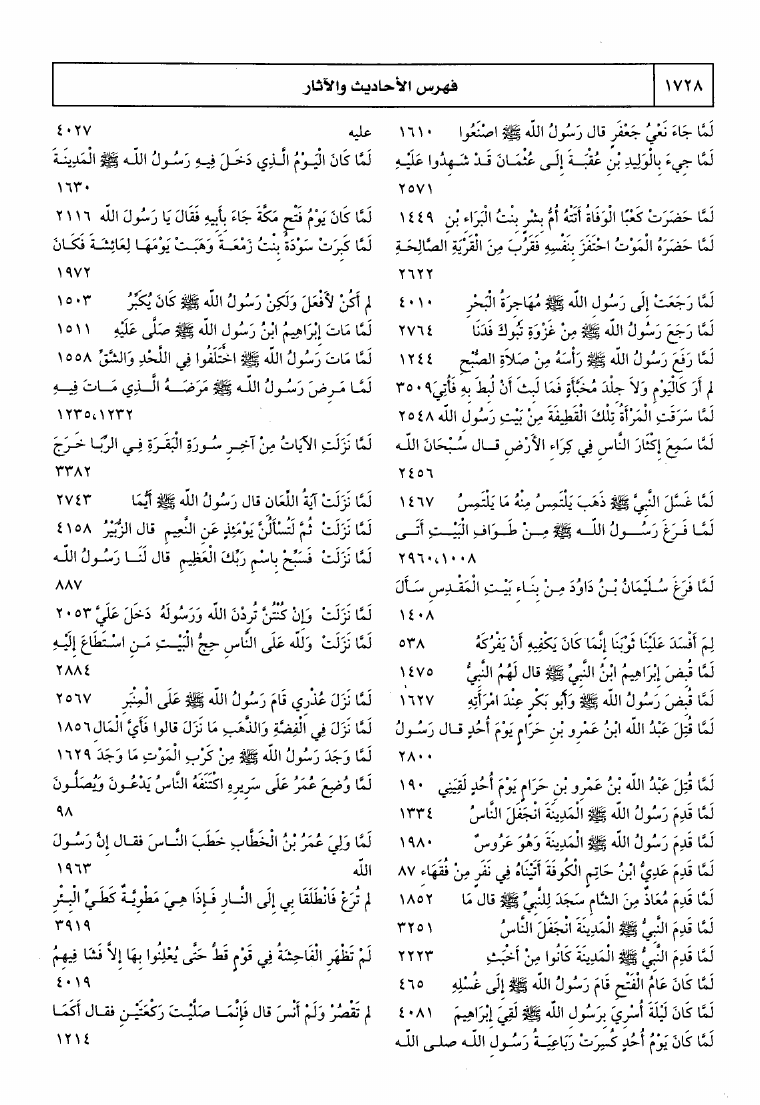 ١٧٢٨
فهرس الأحاديث والآثار
لَمَّا جَاءَ نَعْيُ جَعْفَرٍ قال رَسُولُ اللَّه ﷺ اصْنَعُوا ١٦١٠
لَمَّا جِيءَ بِالْوَلِيدِ بْنِ عُقْبَةَ إِلَى عُثْمَانَ قَدْ شَهِدُوا عَلَيْهِ
٢٥٧١
لَمَّا حَضَرَتْ كَعْبًا الْوَفَاةُ أَتَتْهُ أُمُّ بِشْرٍ بِنْتُ الْبَرَاءِ بْنِ ١٤٤٩
لَمَّا حَضَرَهُ الْمَوْتُ احْتَفَزَ بِنَفْسِهِ فَقَرُبَ مِنَ الْقَرْيَةِ الصَّالِحَةِ
٢٦٢٢
لَمَّا رَجَعَتْ إِلَى رَسُولِ اللَّه ﷺ مُهَاجِرَةُ الْبَحْرِ ٤٠١٠
لَمَّا رَجَعَ رَسُولُ اللَّه ﷺ مِنْ غَزْوَةِ تَبُوكَ فَدَنَا ٢٧٦٤
لَمَّا رَفَعَ رَسُولُ اللَّه ﷺ رَأْسَهُ مِنْ صَلاَةِ الصُّبْحِ ١٢٤٤
لم أَرَ كَالْيَوْمِ وَلاَ جِلْدَ مُخَبَّأَةٍ فَمَا لَبِثَ أَنْ لُبِطَ بِهِ فَأُتِيَ ٣٥٠٩
لَمَّا سَرَقَتِ الْمَرْأَةُ تِلْكَ الْقَطِيفَةَ مِنْ بَيْتِ رَسُولِ اللَّه ٢٥٤٨
لَمَّا سَمِعَ إِكْثَارَ النَّاسِ فِي كِرَاءِ الأَرْضِ قال سُبْحَانَ اللَّه
٢٤٥٦
لَمَّا غَسَّلَ النَّبِيَّ ﷺ ذَهَبَ يَلْتَمِسُ مِنْهُ مَا يَلْتَمِسُ ١٤٦٧
لَمَّا فَرَغَ رَسُولُ اللَّه ﷺ مِنْ طَوَافِ الْبَيْتِ أَتَى
١٠٠٨، ٢٩٦٠
لَمَّا فَرَغَ سُلَيْمَانُ بْنُ دَاوُدَ مِنْ بِنَاءِ بَيْتِ الْمَقْدِسِ سَأَلَ
١٤٠٨
لِمَ أَفْسَدَ عَلَيْنَا ثَوْبَنَا إِنَّمَا كَانَ يَكْفِيهِ أَنْ يَفْرُكَهُ ٥٣٨
لَمَّا قُبِضَ إِبْرَاهِيمُ ابْنُ النَّبِيِّ ﷺ قال لَهُمُ النَّبِيُّ ١٤٧٥
لَمَّا قُبِضَ رَسُولُ اللَّه ﷺ وَأَبُو بَكْرٍ عِنْدَ امْرَأَتِهِ ١٦٢٧
لَمَّا قُتِلَ عَبْدُ اللَّه ابْنُ عَمْرِو بْنِ حَرَامٍ يَوْمَ أُحُدٍ قال رَسُولُ
٢٨٠٠
لَمَّا قُتِلَ عَبْدُ اللَّه بْنُ عَمْرِو بْنِ حَرَامٍ يَوْمَ أُحُدٍ لَقِيَنِي ١٩٠
لَمَّا قَدِمَ رَسُولُ اللَّه ﷺ الْمَدِينَةَ انْجَفَلَ النَّاسُ ١٣٣٤
لَمَّا قَدِمَ رَسُولُ اللَّه ﷺ الْمَدِينَةَ وَهُوَ عَرُوسٌ ١٩٨٠
لَمَّا قَدِمَ عَدِيُّ ابْنُ حَاتِمٍ الْكُوفَةَ أَتَيْنَاهُ فِي نَفَرٍ مِنْ فُقَهَاءِ ٨٧
لَمَّا قَدِمَ مُعَاذٌ مِنَ الشَّامِ سَجَدَ لِلنَّبِيِّ ﷺ قال مَا ١٨٥٢
لَمَّا قَدِمَ النَّبِيُّ ﷺ الْمَدِينَةَ انْجَفَلَ النَّاسُ ٣٢٥١
لَمَّا قَدِمَ النَّبِيُّ ﷺ الْمَدِينَةَ كَانُوا مِنْ أَخْبَثِ ٢٢٢٣
لَمَّا كَانَ عَامُ الْفَتْحِ قَامَ رَسُولُ اللَّه ﷺ إِلَى غُسْلِهِ ٤٦٥
لَمَّا كَانَ لَيْلَةَ أُسْرِيَ بِرَسُولِ اللَّه ﷺ لَقِيَ إِبْرَاهِيمَ ٤٠٨١
لَمَّا كَانَ يَوْمُ أُحُدٍ كُسِرَتْ رَبَاعِيَةُ رَسُولِ اللَّه صلى اللَّه
عليه ٤٠٢٧
لَمَّا كَانَ الْيَوْمُ الَّذِي دَخَلَ فِيهِ رَسُولُ اللَّه ﷺ الْمَدِينَةَ
١٦٣٠
لَمَّا كَانَ يَوْمُ فَتْحِ مَكَّةَ جَاءَ بِأَبِيهِ فَقَالَ يَا رَسُولَ اللَّه ٢١١٦
لَمَّا كَبِرَتْ سَوْدَةُ بِنْتُ زَمْعَةَ وَهَبَتْ يَوْمَهَا لِعَائِشَةَ فَكَانَ
١٩٧٢
لم أَكُنْ لأَفْعَلَ وَلَكِنْ رَسُولُ اللَّه ﷺ كَانَ يُكَبِّرُ ١٥٠٣
لَمَّا مَاتَ إِبْرَاهِيمُ ابْنُ رَسُولِ اللَّه ﷺ صَلَّى عَلَيْهِ ١٥١١
لَمَّا مَاتَ رَسُولُ اللَّه ﷺ اخْتَلَفُوا فِي اللَّحْدِ وَالشَّقِّ ١٥٥٨
لَمَّا مَرِضَ رَسُولُ اللَّه ﷺ مَرَضَهُ الَّذِي مَاتَ فِيهِ
١٢٣٢، ١٢٣٥
لَمَّا نَزَلَتِ الآيَاتُ مِنْ آخِرِ سُورَةِ الْبَقَرَةِ فِي الرِّبَا خَرَجَ
٣٣٨٢
لَمَّا نَزَلَتْ آيَةُ اللِّعَانِ قال رَسُولُ اللَّه ﷺ أَيُّمَا ٢٧٤٣
لَمَّا نَزَلَتْ ثُمَّ لَتُسْأَلُنَّ يَوْمَئِذٍ عَنِ النَّعِيمِ قال الزُّبَيْرُ ٤١٥٨
لَمَّا نَزَلَتْ فَسَبِّحْ بِاسْمِ رَبِّكَ الْعَظِيمِ قال لَنَا رَسُولُ اللَّه
٨٨٧
لَمَّا نَزَلَتْ وَإِنْ كُنْتُنَّ تُرِدْنَ اللَّه وَرَسُولَهُ دَخَلَ عَلَيَّ ٢٠٥٣
لَمَّا نَزَلَتْ وَلِلَّه عَلَى النَّاسِ حِجُّ الْبَيْتِ مَنِ اسْتَطَاعَ إِلَيْهِ
٢٨٨٤
لَمَّا نَزَلَ عُذْرِي قَامَ رَسُولُ اللَّه ﷺ عَلَى الْمِنْبَرِ ٢٥٦٧
لَمَّا نَزَلَ فِي الْفِضَّةِ وَالذَّهَبِ مَا نَزَلَ قالوا فَأَيَّ الْمَالِ ١٨٥٦
لَمَّا وَجَدَ رَسُولُ اللَّه ﷺ مِنْ كَرْبِ الْمَوْتِ مَا وَجَدَ ١٦٢٩
لَمَّا وُضِعَ عُمَرُ عَلَى سَرِيرِهِ اكْتَنَفَهُ النَّاسُ يَدْعُونَ وَيُصَلُّونَ
٩٨
لَمَّا وَلِيَ عُمَرُ بْنُ الْخَطَّابِ خَطَبَ النَّاسَ فقال إِنَّ رَسُولَ
اللَّه ١٩٦٣
لم تُرَعْ فَانْطَلَقَا بِي إِلَى النَّارِ فَإِذَا هِيَ مَطْوِيَّةٌ كَطَيِّ الْبِئْرِ
٣٩١٩
لَمْ تَظْهَرِ الْفَاحِشَةُ فِي قَوْمٍ قَطُّ حَتَّى يُعْلِنُوا بِهَا إِلاَّ فَشَا فِيهِمُ
٤٠١٩
لم تَقْصُرْ وَلَمْ أَنْسَ قال فَإِنَّمَا صَلَّيْتَ رَكْعَتَيْنِ فقال أَكَمَا
١٢١٤